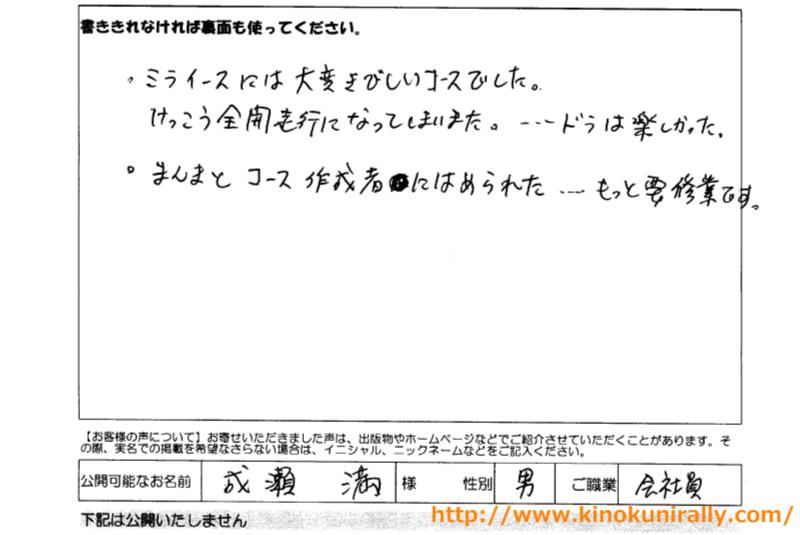 書ききれなければ裏面も使ってください。
。ミライースには大変きびしいコースでした。
けっこう全開走行になってしまいました。----ドラは楽しかった。
。まんまと コース作成者にはめられた ---- もっと要修業です。
【お客様の声について】お寄せいただきました声は、出版物やホームページなどでご紹介させていただくことがあります。そ
の際、実名での掲載を希望なさらない場合は、イニシャル、ニックネームなどをご記入ください。
公開可能なお名前 成瀬 満 様 性別 男 ご職業 会社員
下記は公開いたしません
http://www.kinokunirally.com/